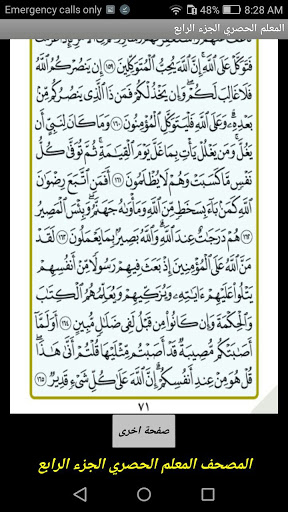 Emergency calls only
8:28 AM
المعلم الحصري الجزء الرابع
فَتَوَكَّلْ عَلَى ٱللَّهِ إِنَّ ٱللَّهَ يُحِبُّ ٱلْمُتَوَكِّلِينَ ١٥٩ إِن يَنصُرْكُمُ ٱللَّهُ
فَلَا غَالِبَ لَكُمْ وَإِن يَخْذُلْكُمْ فَمَن ذَا ٱلَّذِى يَنصُرُكُم مِّنۢ
بَعْدِهِۦ وَعَلَى ٱللَّهِ فَلْيَتَوَكَّلِ ٱلْمُؤْمِنُونَ ١٦٠ وَمَا كَانَ لِنَبِىٍّ أَن
يَغُلَّ وَمَن يَغْلُلْ يَأْتِ بِمَا غَلَّ يَوْمَ ٱلْقِيَٰمَةِ ثُمَّ تُوَفَّىٰ كُلُّ
نَفْسٍ مَّا كَسَبَتْ وَهُمْ لَا يُظْلَمُونَ ١٦١ أَفَمَنِ ٱتَّبَعَ رِضْوَٰنَ
ٱللَّهِ كَمَنۢ بَآءَ بِسَخَطٍ مِّنَ ٱللَّهِ وَمَأْوَىٰهُ جَهَنَّمُ وَبِئْسَ ٱلْمَصِيرُ
١٦٢ هُمْ دَرَجَٰتٌ عِندَ ٱللَّهِ وَٱللَّهُ بَصِيرٌۢ بِمَا يَعْمَلُونَ ١٦٣ لَقَدْ
مَنَّ ٱللَّهُ عَلَى ٱلْمُؤْمِنِينَ إِذْ بَعَثَ فِيهِمْ رَسُولًا مِّنْ أَنفُسِهِمْ
يَتْلُوا۟ عَلَيْهِمْ ءَايَٰتِهِۦ وَيُزَكِّيهِمْ وَيُعَلِّمُهُمُ ٱلْكِتَٰبَ
وَٱلْحِكْمَةَ وَإِن كَانُوا۟ مِن قَبْلُ لَفِى ضَلَٰلٍ مُّبِينٍ ١٦٤ أَوَلَمَّآ
أَصَٰبَتْكُم مُّصِيبَةٌ قَدْ أَصَبْتُم مِّثْلَيْهَا قُلْتُمْ أَنَّىٰ هَٰذَا
قُلْ هُوَ مِنْ عِندِ أَنفُسِكُمْ إِنَّ ٱللَّهَ عَلَىٰ كُلِّ شَىْءٍ قَدِيرٌ ١٦٥
٧١
صفحة اخرى
المصحف المعلم الحصري الجزء الرابع